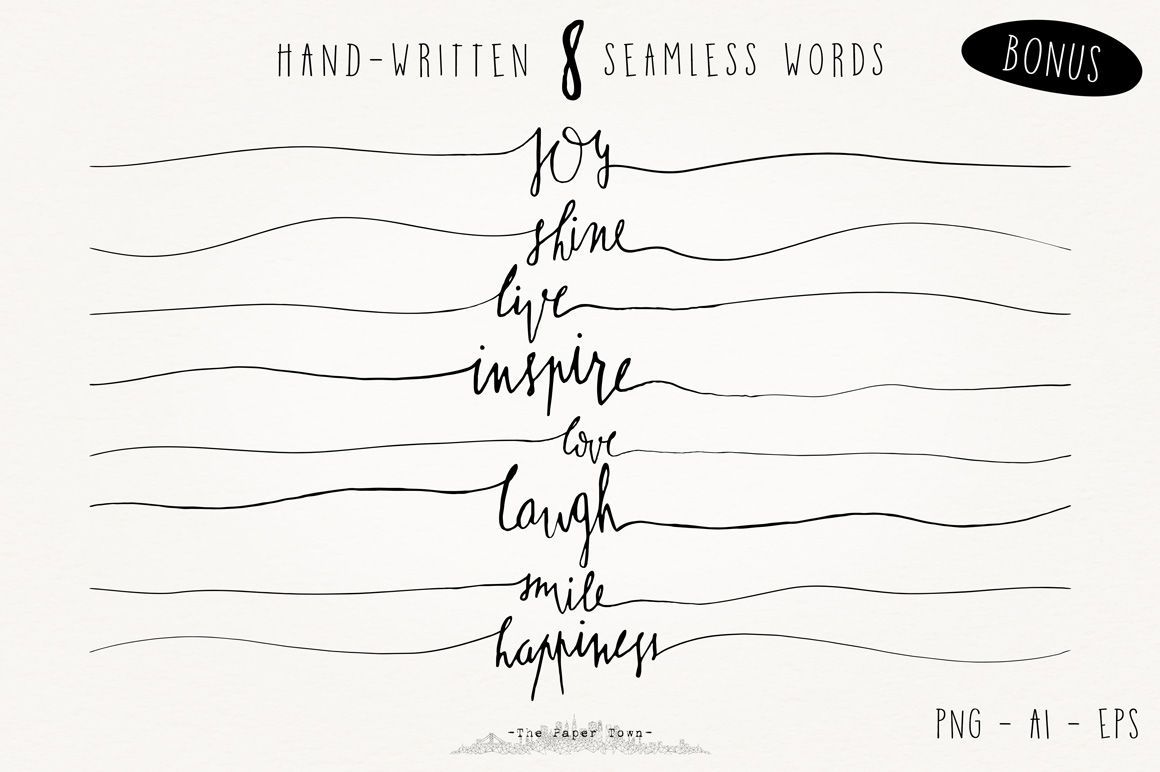 HAND-WRITTEN 8 SEAMLESS WORDS
BONUS
joy
shine
live
inspire
love
laugh
smile
happiness
-The Paper Town-
PNG - AI - EPS